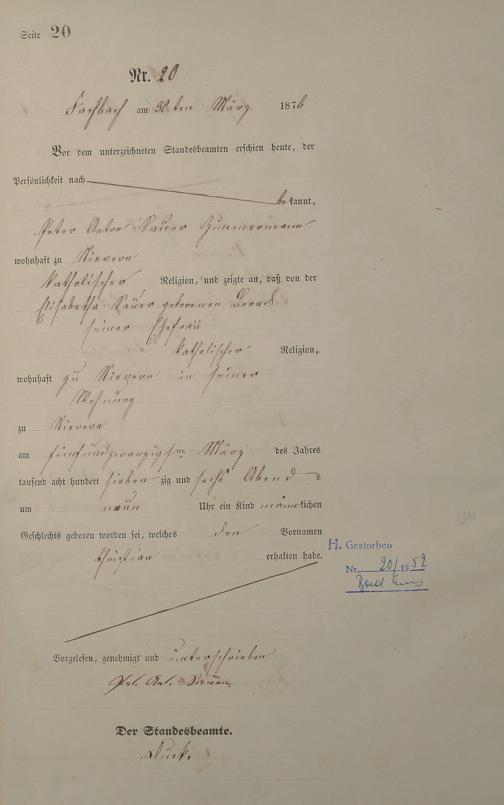 Seite 20
Nr. 20
Fachbach am 30ten März 1876
Vor dem unterzeichneten Standesbeamten erschien heute, der
Persönlichkeit nach
bekannt,
Peter Anton Sauer
wohnhaft zu Nievern
katholischer Religion, und zeigte an, daß von der
Elisabetha Sauer geborenen
seiner Ehefrau
katholischer Religion,
wohnhaft zu Nievern in seiner
Wohnung
zu Nievern
am fünfundzwanzigsten März des Jahres
tausend acht hundert siebenzig und sechs Abends
um neun Uhr ein Kind männlichen
Geschlechts geboren worden sei, welches den Vornamen
Christian erhalten habe.
H. Gestorben
Nr. 20/1952
Bad Ems
Vorgelesen, genehmigt und unterschrieben
Pet. Ant. Sauer.
Der Standesbeamte.